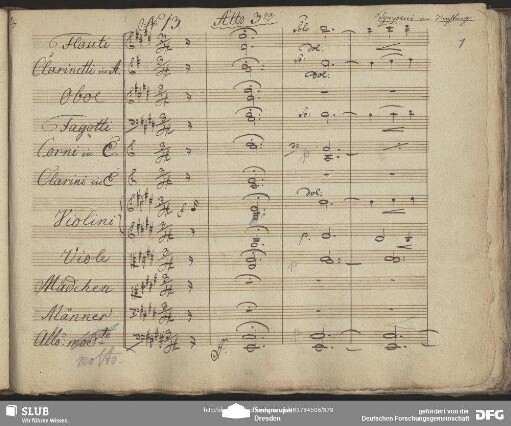 No 13
Atto 3zo
1
Flauti
Solo
Dol:
Clarinetti in A.
So:
Dol:
Oboe
Fagotti
So:
Corni in E.
Clarini in E
Dol:
Violini
p.
Viole
Mädchen
Männer
Allo: moderato
molto.
SLUB
Wir führen Wissen.
Dresden
gefördert von der
Deutschen Forschungsgemeinschaft
DFG